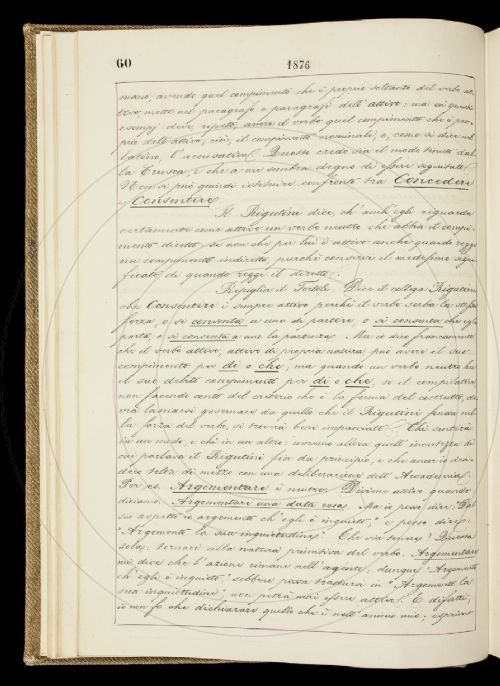 60
1876
mano, avendo quel compimento che è proprio soltanto del verbo at-
tivo, mette nel paragrafo o paragrafi dell'attivo; ma in questi
esempj deve, ripeto, avere il verbo quel compimento che è pro-
prio dell'attivo, cioè, il compimento nominale, o, come si dice nel
latino, l'accusativo. Questo credo sia il modo tenuto dal-
la Crusca, e che a me sembra degno di esser seguitato.
Non si può quindi istituire confronto tra Concedere
e Consentire.
Il Rigutini dice, ch'anch'egli riguarda
certamente come attivo un verbo neutro che abbia il compi-
mento diretto, se non che per lui è attivo anche quando regge
un compimento indiretto, purchè conservi il medesimo signi-
ficato di quando reggi il diretto.
Ripiglia il Tortoli: Dice il collega Rigutini
che Consentire è sempre attivo perchè il verbo serba la stessa
forza, o si consenta a uno di partire, o si consenta che egli
parta, o si consenta a uno la partenza. Ma io dico francamente
che il verbo attivo, attivo di propria natura, può avere il suo
compimento per di o che; ma quando un verbo neutro ha
il suo debito compimento per di o che, se il compilatore
non facendo conto del criterio che è la forma del costrutto, do-
vrà lasciarsi governare da quello che il Rigutini fonda nel-
la forza del verbo, si troverà bene impacciato. Chi sentirà
in un modo, e chi in un altro: avremo allora quell'incertezza di
cui parlava il Rigutini fin da principio, e che anch'io desi-
dero tolta di mezzo con una deliberazione dell'Accademia.
Per es. Argomentare è neutro. Diviene attivo quando
diciamo: Argomentare una data cosa. Ma io posso dire: "Dal
suo aspetto io argomento ch'egli è inquieto," e posso dire:
"Argomento la sua inquietudine." Che via tenere? Questa
sola: tornare alla natura primitiva del verbo. Argomentare
mi dice che l'azione rimane nell'agente; dunque "Argomento
ch'egli è inquieto," sebbene possa tradursi in "Argomento la
sua inquietudine," non potrà mai essere attivo. E difatti,
io non fo che dichiarare quello che è nell'animo mio; esprimo